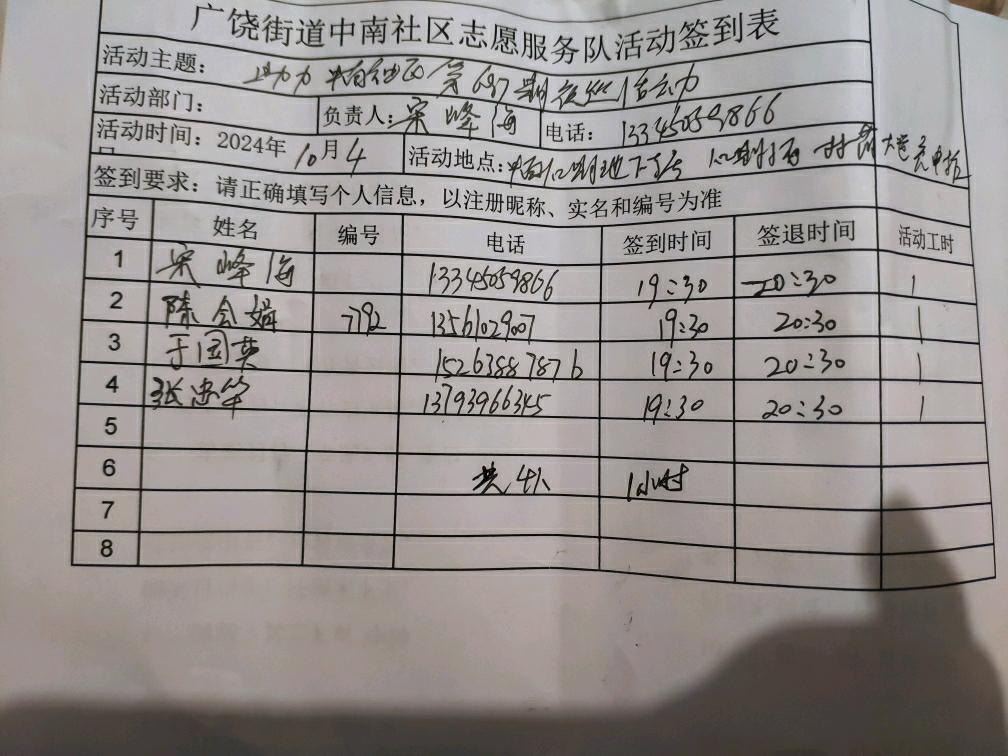 广饶街道中南社区志愿服务队活动签到表
活动主题： 助力中南社区第687期夜巡活动
活动部门： 负责人：宋峰海 电话：13345059866
活动时间：2024年10月4日 活动地点：中南 地下车
签到要求：请正确填写个人信息，以注册昵称、实名和编号为准
序号 姓名 编号 电话 签到时间 签退时间 活动工时
1 宋峰海 13345059866 19:30 20:30 1
2 陈会娟 7792 13561029007 19:30 20:30 1
3 于国英 15263887876 19:30 20:30 1
4 张忠华 13793966345 19:30 20:30 1
5
6 共4人 1小时
7
8